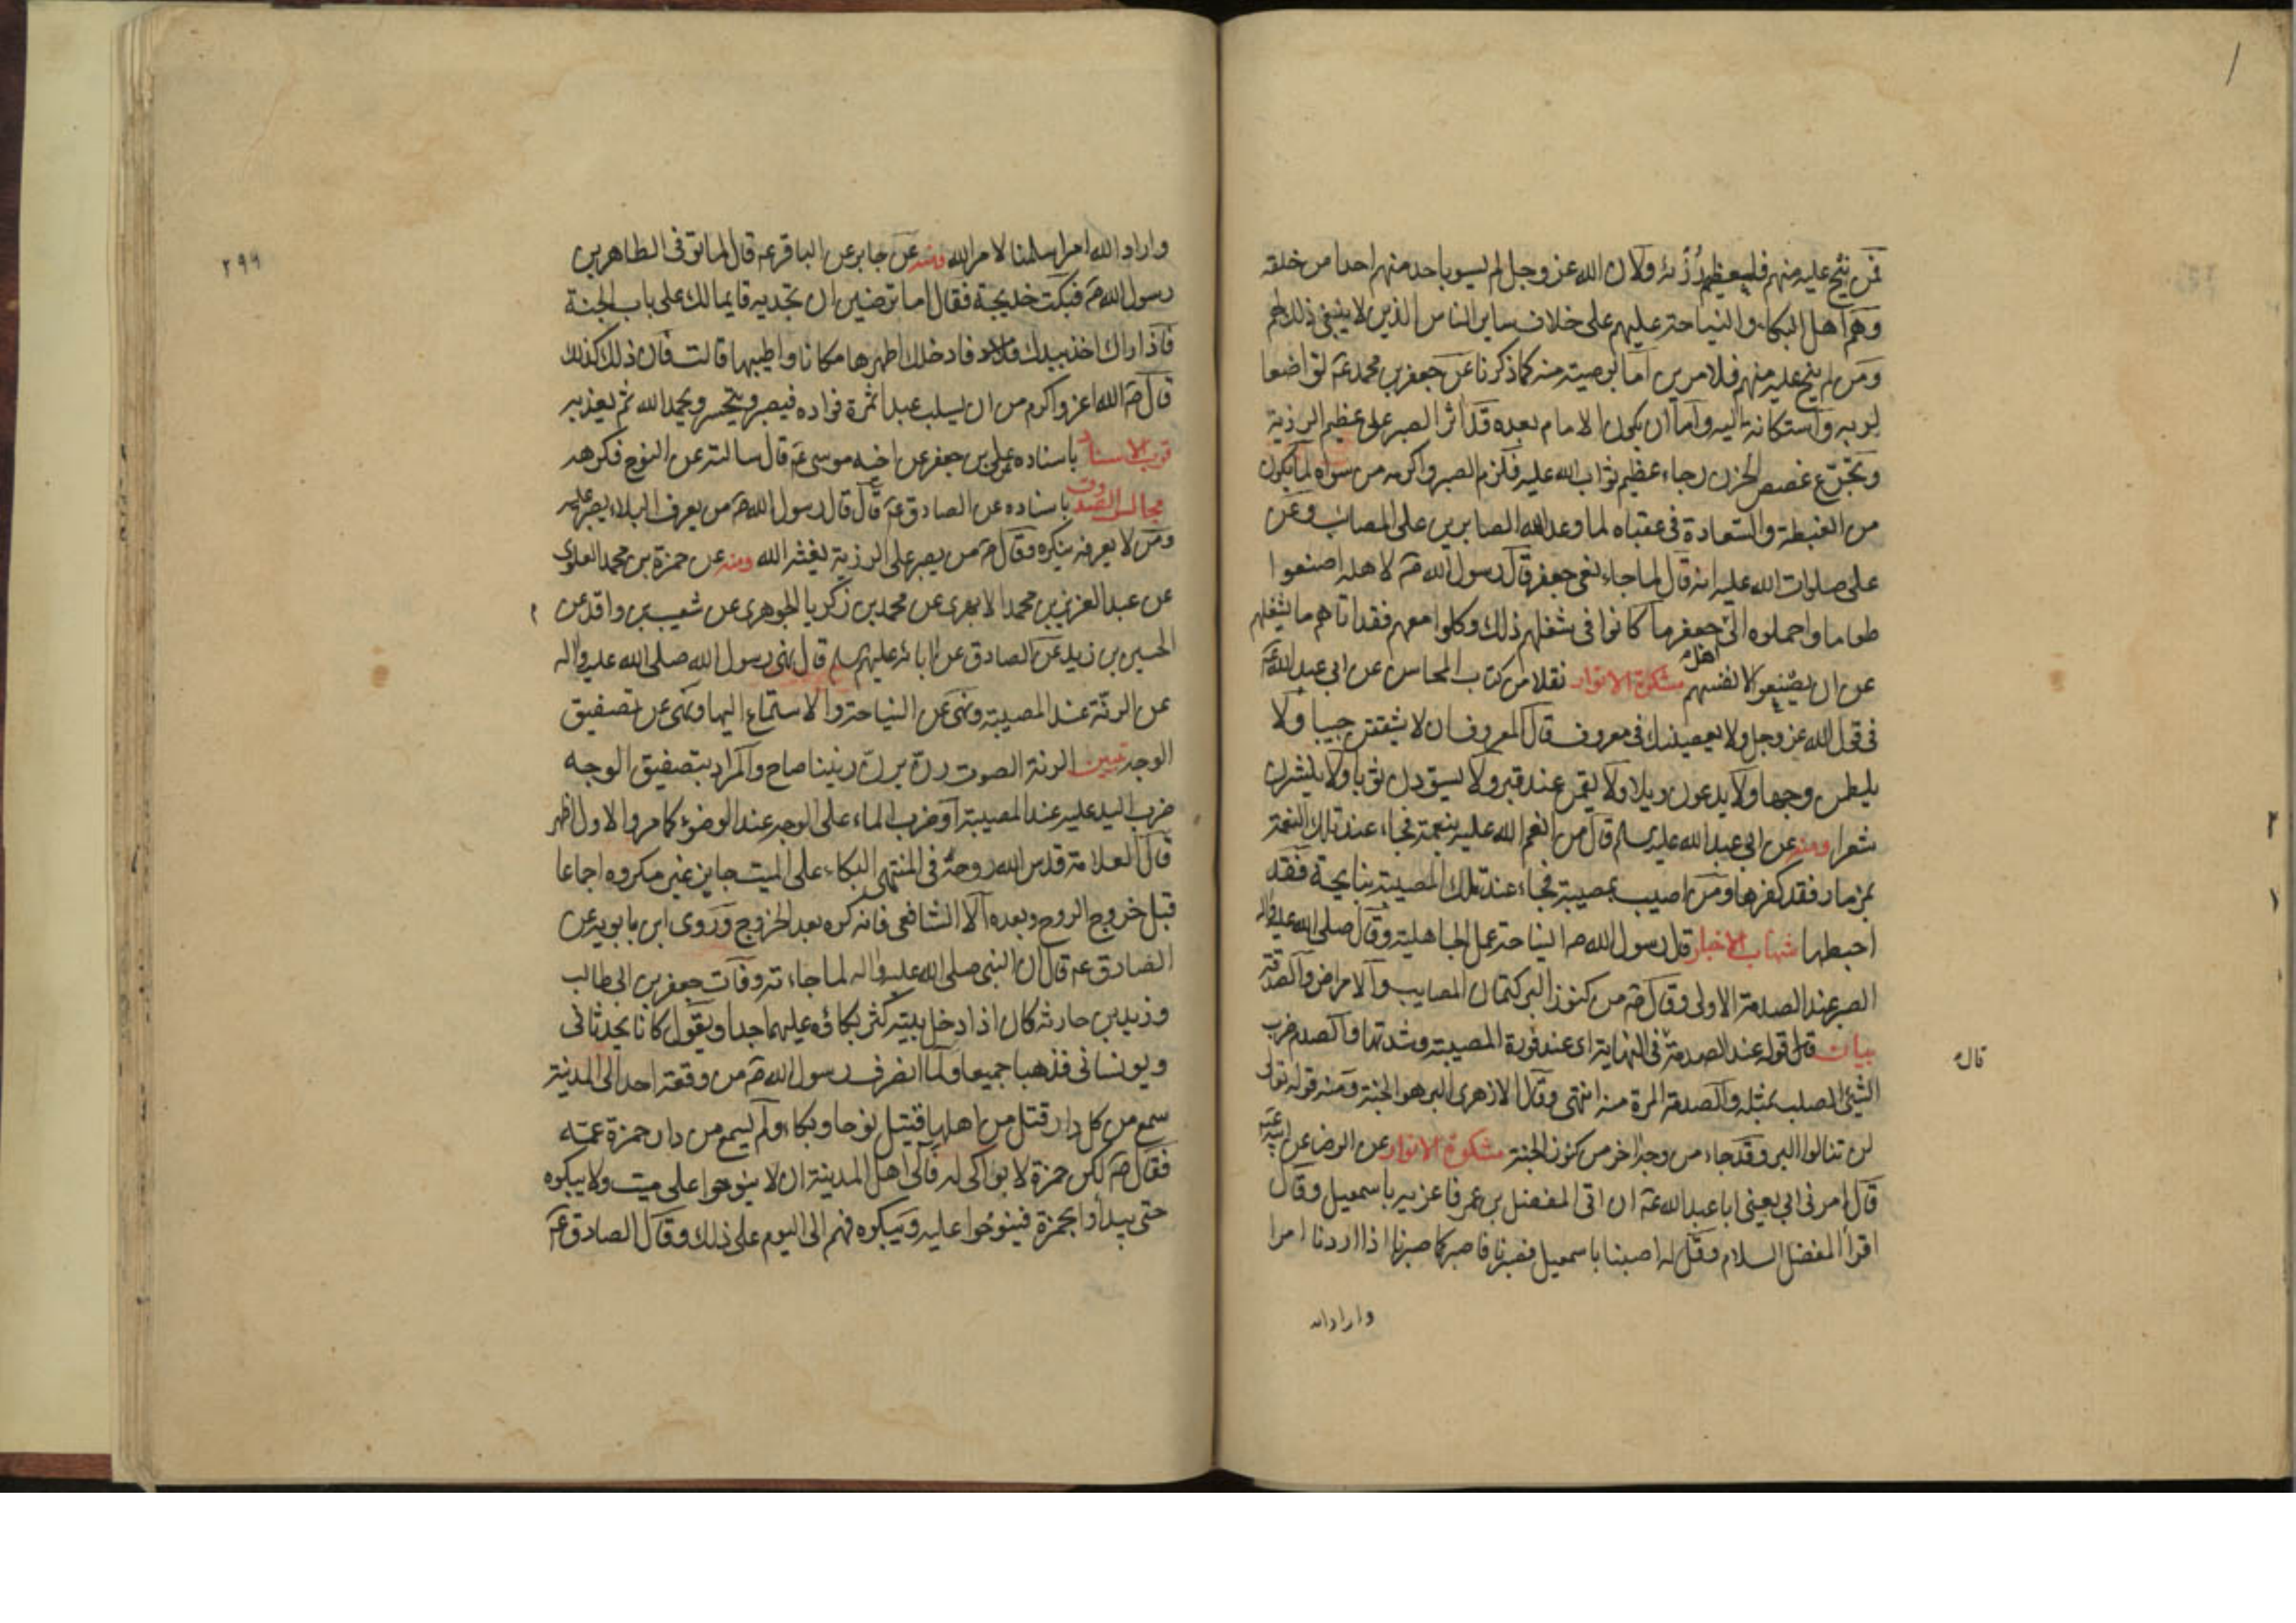 فمن نيح عليه منهم فلعظيم رزئه ولان الله عز وجل لم يسو باحد منهم احدا من خلقه
وهم اهل البكاء والنياحة عليهم على خلاف ساير الناس الذين لا ينبغي ذلك لهم
ومن لم ينح عليه منهم فلامرين اما بوصيته منه كما ذكرنا عن جعفر بن محمد ع تواضعا
لربه واستكانة اليه واما ان يكون الامام بعده قد اثر الصبر على عظيم الرزية
وتجرع غصص الحزن رجاء عظيم ثواب الله عليه فلزم الصبر واكرمه من سواه لما يكون
من الغبطة والسعادة في عقباه لما وعد الله الصابرين على المصائب وعن
علي صلوات الله عليه انه قال لما جاء نعي جعفر قال رسول الله ص لاهله اصنعوا
طعاما واحملوه الى جعفر ما كانوا في شغلهم ذلك وكلوا معهم فقد اتاهم ما يشغلهم
اهل
عن ان يصنعوا لانفسهم مشكوة الانوار نقلا من كتاب المحاسن عن ابي عبد الله ع
في قول الله عز وجل ولا يعصينك في معروف قال المعروف ان لا يشققن جيبا ولا
يلطمن وجها ولا يدعون ويلا ولا يقمن عند قبر ولا يسودن ثوبا ولا ينشرن
شعرا ومنه عن ابي عبد الله عليه سلم قال من انعم الله عليه بنعمة فجاء عند تلك النعمة
بمزمار فقد كفرها ومن اصيب بمصيبة فجاء عند تلك المصيبة بنايحة فقد
احبطها شهاب الاخبار قال رسول الله ص النياحة عمل الجاهلية وقال صلى الله عليه واله
الصبر عند الصدمة الاولى وقال ص من كنوز البر كتمان المصايب والامراض والصدقة
بيان قال قوله عند الصدمة في النهاية اي عند فورة المصيبة وشدتها والصدم ضرب
قال
الشيء الصلب بمثله والصدمة المرة منه انتهى وقال الازهري البر هو الجنة ومنه قوله تعالى
لن تنالوا البر وقد جاء من وجه اخر من كنوز الجنة مشكوة الانوار عن الرضا عن ابيه ع
قال امرني ابي يعني ابا عبد الله ع ان اتي المفضل بن عمر فاعزيه باسمعيل وقال
اقرأ المفضل السلام وقل له اصبنا باسمعيل فصبرنا فاصبر كما صبرنا اذا اردنا امرا
واراد الله
٢٩٩
واراد الله امرا سلمنا لامر الله ومنه عن جابر عن الباقر ع قال لما توفي الطاهر بن
رسول الله ص فبكت خديجة فقال اما ترضين ان تجديه قايما لك على باب الجنة
فاذا راك اخذ بيدك فادخلك اطهرها مكانا واطيبها قالت فان ذلك كذلك
قال ص الله اعز واكرم من ان يسلب عبدا ثمرة فواده فيصبر ويحتسب ويحمد الله ثم يعذبه
قرب الاسناد باسناده عن علي بن جعفر عن اخيه موسى ع قال سالته عن النوح فكرهه
مجالس الصدوق باسناده عن الصادق ع قال قال رسول الله ص من يعرف البلاء يصبر عليه
ومن لا يعرفه ينكره وقال ص من يصبر على الرزية يغثه الله ومنه عن حمزة بن محمد العلوي
عن عبد العزيز بن محمد الابهري عن محمد بن زكريا الجوهري عن شعيب بن واقد عن
الحسين بن زيد عن الصادق عن ابائه عليهم سلم قال نهى رسول الله صلى الله عليه واله
عن الرنة عند المصيبة ونهى عن النياحة والاستماع اليها ونهى عن تصفيق
الوجه تبيين الرنة الصوت رن يرن رنينا صاح والمراد بتصفيق الوجه
ضرب اليد عليه عند المصيبة او ضرب الماء على الوجه عند الوضوء كما مر والاول اظهر
قال العلامة قدس الله روحه في المنتهى البكاء على الميت جايز غير مكروه اجماعا
قبل خروج الروح وبعده الا الشافعي فانه كره بعد الخروج وروى ابن بابويه عن
الصادق ع قال ان النبي صلى الله عليه واله لما جاءته وفات جعفر بن ابي طالب
وزيد بن حارثه كان اذا دخل بيته كثر بكاؤه عليهما جدا ويقول كانا يحدثاني
ويونساني فذهبا جميعا ولما انصرف رسول الله ص من وقعة احد الى المدينة
سمع من كل دار قتل من اهلها قتيل نوحا وبكاء ولم يسمع من دار حمزة عمه
فقال ص لكن حمزة لا بواكي له فالى اهل المدينة ان لا ينوحوا على ميت ولا يبكوه
حتى يبدأوا بحمزة فينوحوا عليه ويبكوه فهم الى اليوم على ذلك وقال الصادق ع